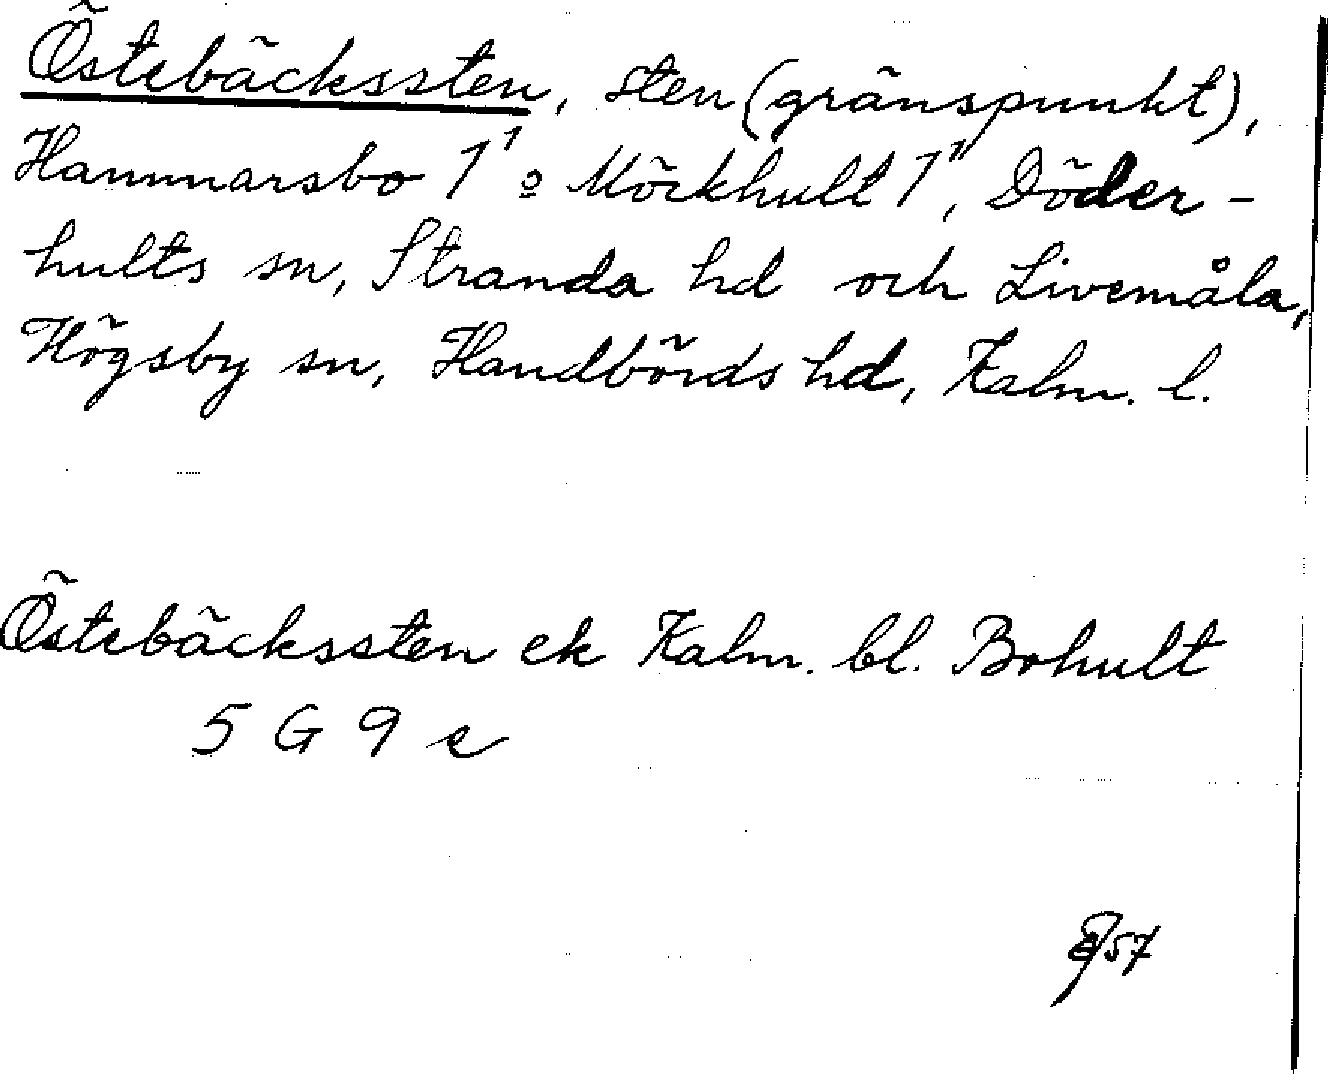 Östebäckssten, sten (gränspunkt),
Hammarsbo 1¹ o Möckhult 1", Döder-
hults sn, Stranda hd och Livemåla,
Högsby sn, Handbörds hd, Kalm. l.
Östebäckssten ek Kalm. bl. Bohult
5 G 9 e
57